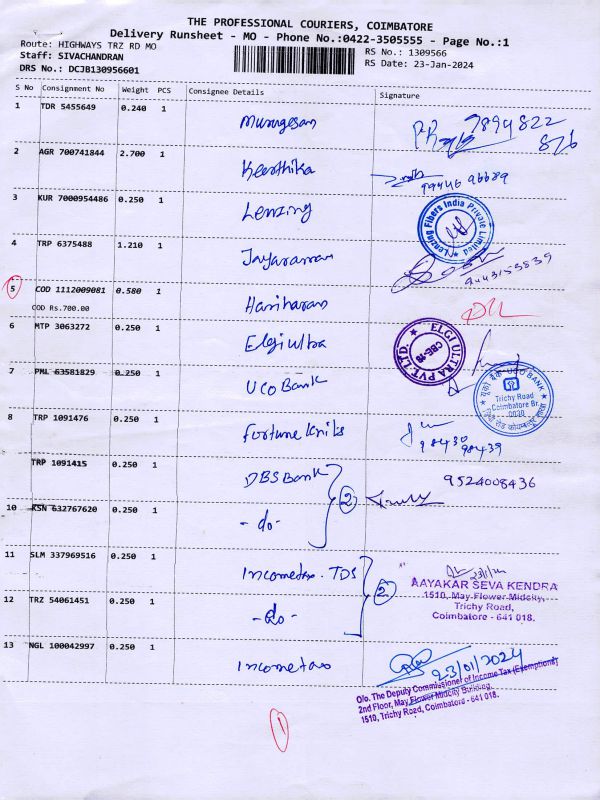 THE PROFESSIONAL COURIERS, COIMBATORE
Delivery Runsheet - MO - Phone No.:0422-3505555 - Page No.:1
Route: HIGHWAYS TRZ RD MO
Staff: SIVACHANDRAN
DRS No.: DCJB130956601
RS No.: 1309566
RS Date: 23-Jan-2024
S No Consignment No Weight PCS Consignee Details Signature
1 TDR 5455649 0.240 1 Murugesan 7894822
876
2 AGR 700741844 2.700 1 Keerthika
99446 96689
3 KUR 7000954486 0.250 1 Lenzing
Lenzing Fibers India Private Limited
4 TRP 6375488 1.210 1 Jayaraman
9443153839
5 COD 1112009081 0.580 1 Hariharan
COD Rs.700.00
6 MTP 3063272 0.250 1 Elgi Ultra
ELGI ULTRA PVT. LTD.
CBE-18
7 PML 63581829 0.250 1 UCO Bank
यूको बैंक UCO BANK
Trichy Road
Coimbatore Br.
8 TRP 1091476 0.250 1 Fortune Knits
98430
98439
TRP 1091415 0.250 1 DBS Bank 2 9524008436
10 KSN 632767620 0.250 1 -do-
11 SLM 337969516 0.250 1 Incometax. TDS 2
AAYAKAR SEVA KENDRA
1510, May Flower Midcity,
Trichy Road,
Coimbatore - 641 018.
12 TRZ 54061451 0.250 1 -do-
13 NGL 100042997 0.250 1 Incometax
23/01/2024
O/o. The Deputy Commissioner of Income Tax (Exemptions)
2nd Floor, May Flower Midcity Building,
1510, Trichy Road, Coimbatore - 641 018.
1